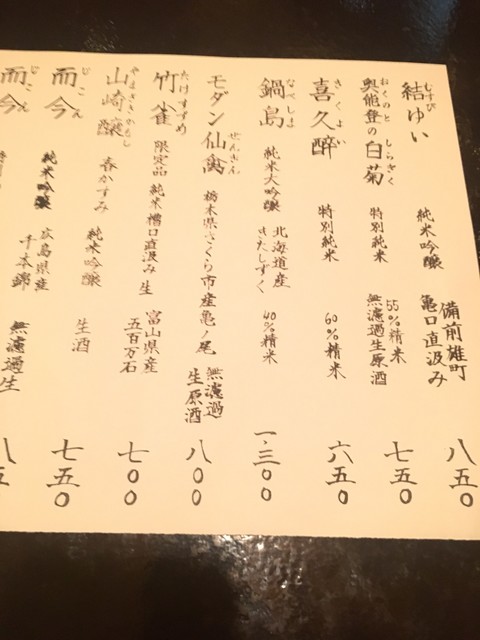 結ゆい 純米吟醸 備前雄町 亀口直汲み 八五〇
むすび
奥能登の白菊 特別純米 55%精米 無濾過生原酒 七五〇
おくのと しらぎく
喜久醉 特別純米 60%精米 六五〇
きくよい
鍋島 純米大吟醸 北海道産 きたしずく 40%精米 一、三〇〇
なべしま
モダン仙禽 栃木県さくら市産亀ノ尾 無濾過 生原酒 八〇〇
せんきん
竹雀 限定品 純米 槽口直汲み 生 富山県産 五百万石 七〇〇
たけすずめ
山崎醸 春かすみ 純米吟醸 生酒 七五〇
やまざきかもし
而今 純米吟醸 広島県産 千本錦 無濾過生 八五
じこん
而今
じこん